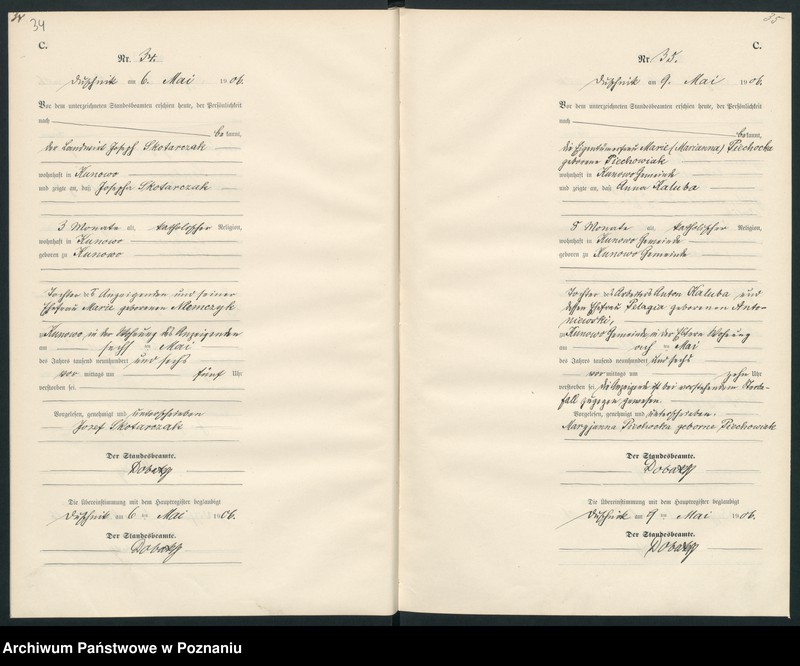 34
C.
Nr. 34.
Duschnik am 6. Mai 1906.
Vor dem unterzeichneten Standesbeamten erschien heute, der Persönlichkeit
nach
bekannt,
der Landwirt Joseph Skotarczak
wohnhaft in Kunowo
und zeigte an, daß Josepha Skotarczak
3 Monate alt, katholischer Religion,
wohnhaft in Kunowo
geboren zu Kunowo
Tochter des Anzeigenden und seiner
Ehefrau Marie geborenen Niemczyk
zu Kunowo, in der Wohnung des Anzeigenden
am sechsten Mai
des Jahres tausend neunhundert und sechs
vor mittags um fünf Uhr
verstorben sei.
Vorgelesen, genehmigt und unterschrieben
Jozef Skotarczak
Der Standesbeamte.
Die Übereinstimmung mit dem Hauptregister beglaubigt
Duschnik am 6ten Mai 1906.
Der Standesbeamte.
35
C.
Nr. 35.
Duschnik am 9. Mai 1906.
Vor dem unterzeichneten Standesbeamten erschien heute, der Persönlichkeit
nach
bekannt,
die Eigentümerfrau Marie (Marianna) Piechocka
geborene Piechowiak
wohnhaft in Kunowo Gemeinde
und zeigte an, daß Anna Kaluba
5 Monate alt, katholischer Religion,
wohnhaft in Kunowo Gemeinde
geboren zu Kunowo Gemeinde
Tochter des Arbeiters Anton Kaluba und
dessen Ehefrau Pelagia geborenen Anto-
niewski,
zu Kunowo Gemeinde, in der Eltern Wohnung
am achten Mai
des Jahres tausend neunhundert und sechs
vor mittags um zehn Uhr
verstorben sei, die Anzeigende ist bei vorstehendem Sterbe-
fall zugegen gewesen.
Vorgelesen, genehmigt und unterschrieben.
Maryjanna Piechocka geborne Piechowiak
Der Standesbeamte.
Die Übereinstimmung mit dem Hauptregister beglaubigt
Duschnik am 9ten Mai 1906.
Der Standesbeamte.
Archiwum Państwowe w Poznaniu